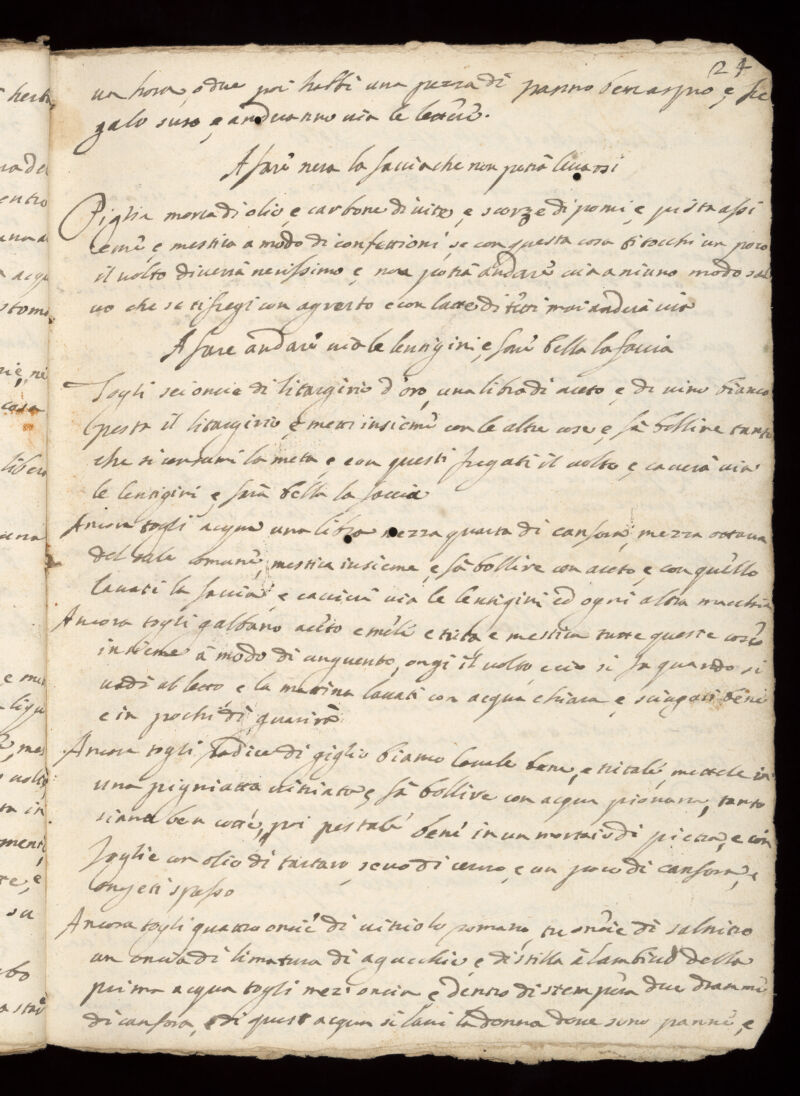 24
un hora, o due poi habbi una pezza di panno ben aspro, e fre
galo suso, e andranno via le
A fare nera la faccia che non potrà levarsi
Piglia morca di olio e carbone di vite, e scorze di pomi, e pista assi
eme, e mestica a modo di confettioni, se con questa cosa ti tocchi un poco
il volto diverrà nerissimo e non potrà andare via a niuno modo sal
vo che se ti fregi con agresto e con latte di andrà via
A fare andare via le lentigini, e fare bella la faccia
Togli sei oncie di litargirio d'oro, una libra di aceto e di vino bianco
pesta il litargirio, e metti insieme con le altre cose e fà bollire tanto
che si consumi la metà, e con questi fregati il volto e caverà via
le lentigini e farà bella la faccia
Ancora togli acqua una libra mezza quarta di canfora, mezza ottava
del sale comune, mestica insieme, e fà bollire con aceto, e con quello
lavati la faccia, e caccierà via le lentigini ed ogni altra macchia
Ancora togli galbano aceto e mele e mestica tutte queste cose
insieme à modo di unguento, ongi il volto, e cio si fa quando si
và di al letto e la mattina lavati con acqua chiara e sciugati bene
e in pochi dì guarirà
Ancora togli radice di giglio bianco lavale bene, e tritale, mettele in
una pigniatta vitriata, e fà bollire con acqua piovana, tanto
siano ben cotte, poi pestale bene in un mortaio di pietra, e con
foglie con olio di tartaro, sevo di cervo, e un poco di canfora, e
ongeti spesso
Ancora togli quattro oncie di vitriolo romano, tre oncie di salnitro
un oncia di limatura di agucchie e distilla à lambico della
prima acqua togli mezz oncia e dentro distempera due dramme
di canfora, e di quest acqua si lavi la donna dove sono panne, e